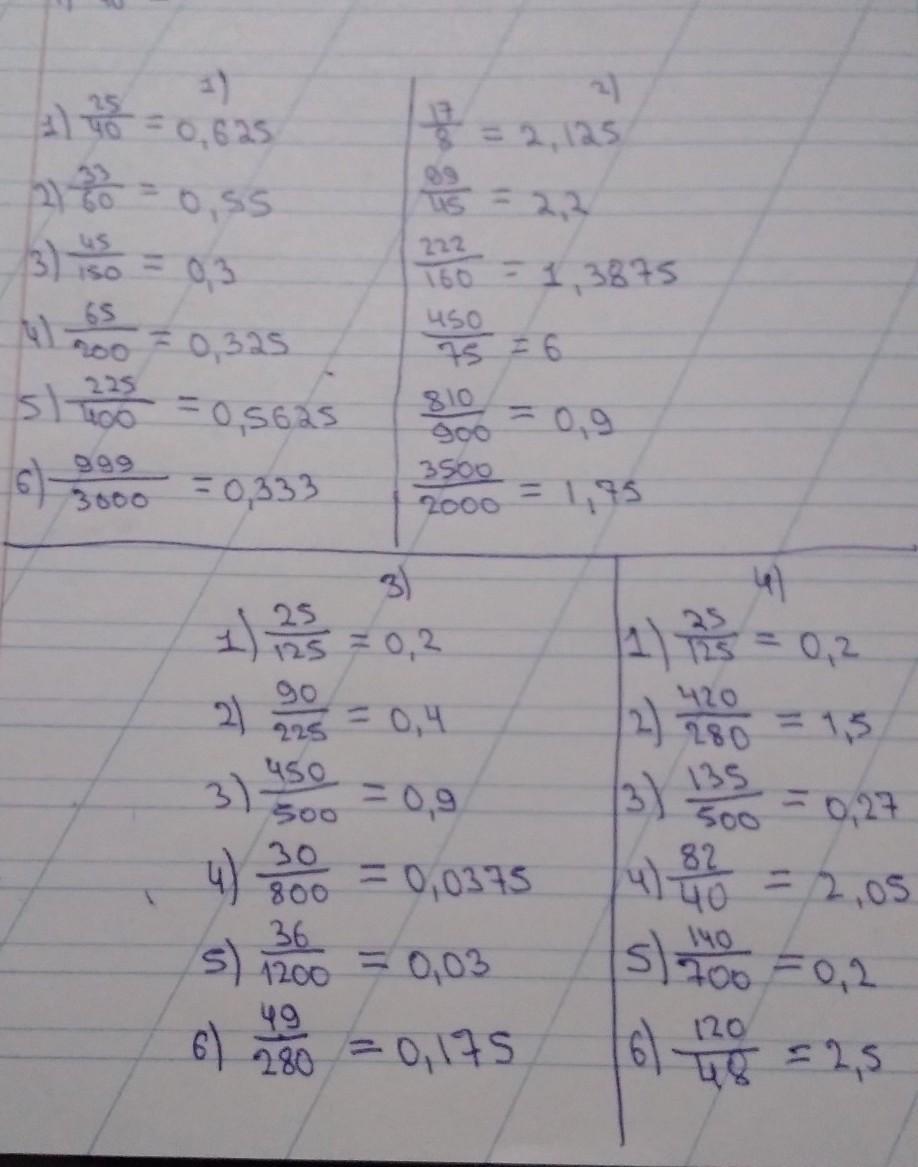 1)
1) 25/40 = 0,625
2) 33/60 = 0,55
3) 45/150 = 0,3
4) 65/200 = 0,325
5) 225/400 = 0,5625
6) 999/3000 = 0,333
2)
17/8 = 2,125
99/45 = 2,2
222/160 = 1,3875
450/75 = 6
810/900 = 0,9
3500/2000 = 1,75
3)
1) 25/125 = 0,2
2) 90/225 = 0,4
3) 450/500 = 0,9
4) 30/800 = 0,0375
5) 36/1200 = 0,03
6) 49/280 = 0,175
4)
1) 25/125 = 0,2
2) 420/280 = 1,5
3) 135/500 = 0,27
4) 82/40 = 2,05
5) 140/700 = 0,2
6) 120/48 = 2,5